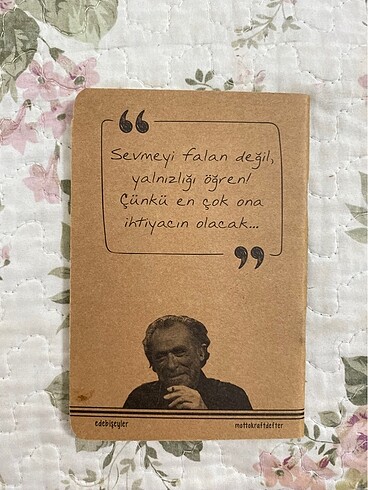 Sevmeyi falan değil,
yalnızlığı öğren!
Çünkü en çok ona
ihtiyacın olacak...
edebişeyler
mottokraftdefter